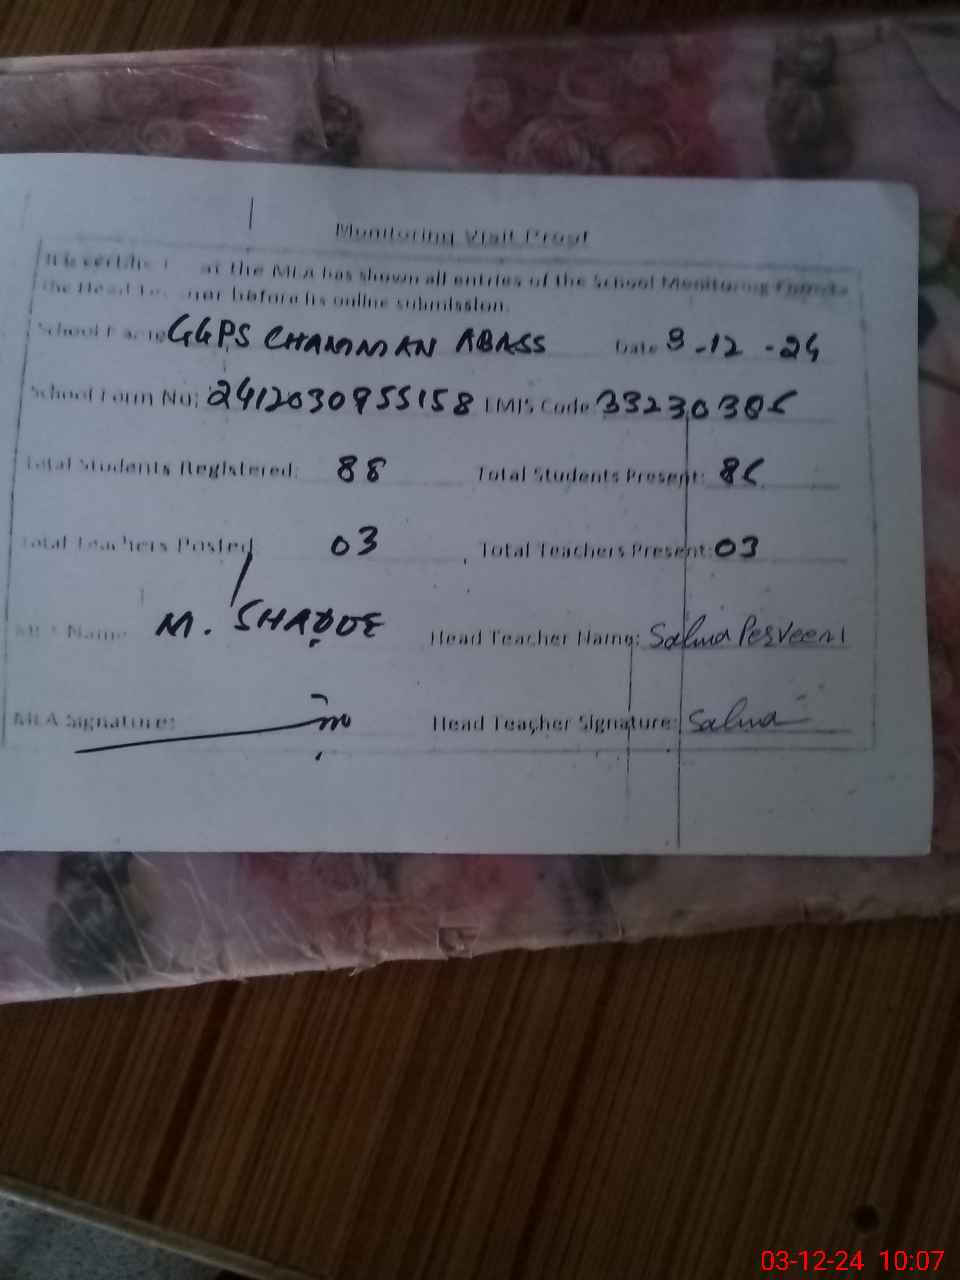 Monitoring Visit Proof
at the MEA has shown all entries of the School Monitoring
the Head before its online submission.
School GGPS CHAMMAN ABASS Date 3-12-24
School Form No: 2412030955158 EMIS Code:
Total Students Registered: 88 Total Students Present: 86
Total Teachers Posted 03 Total Teachers Present: 03
Name M. Head Teacher Name: Salma Perveen
MEA Signature: Head Teacher Signature: Salma
03-12-24 10:07